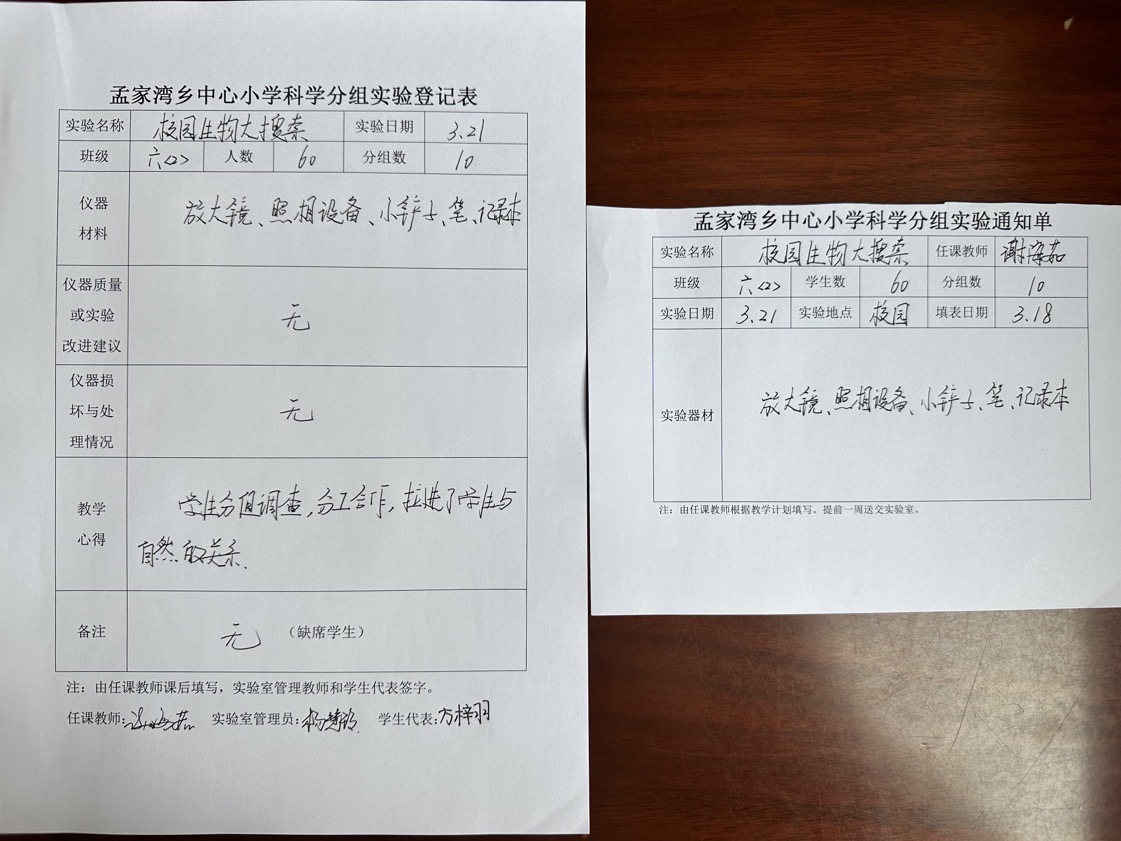 孟家湾乡中心小学科学分组实验登记表
实验名称 校园生物大搜索 实验日期 3.21
班级 六<2> 人数 60 分组数 10
仪器
材料
放大镜、照相设备、小铲子、笔、记录本
仪器质量
或实验
改进建议
无
仪器损
坏与处
理情况
无
教学
心得
学生分组调查,分工合作,拉进了学生与
自然的关系.
备注 无 （缺席学生）
注：由任课教师课后填写，实验室管理教师和学生代表签字。
任课教师: 实验室管理员: 学生代表:方梓羽
孟家湾乡中心小学科学分组实验通知单
实验名称 校园生物大搜索 任课教师 谢海茹
班级 六<2> 学生数 60 分组数 10
实验日期 3.21 实验地点 校园 填表日期 3.18
实验器材 放大镜、照相设备、小铲子、笔、记录本
注：由任课教师根据教学计划填写。提前一周送交实验室。